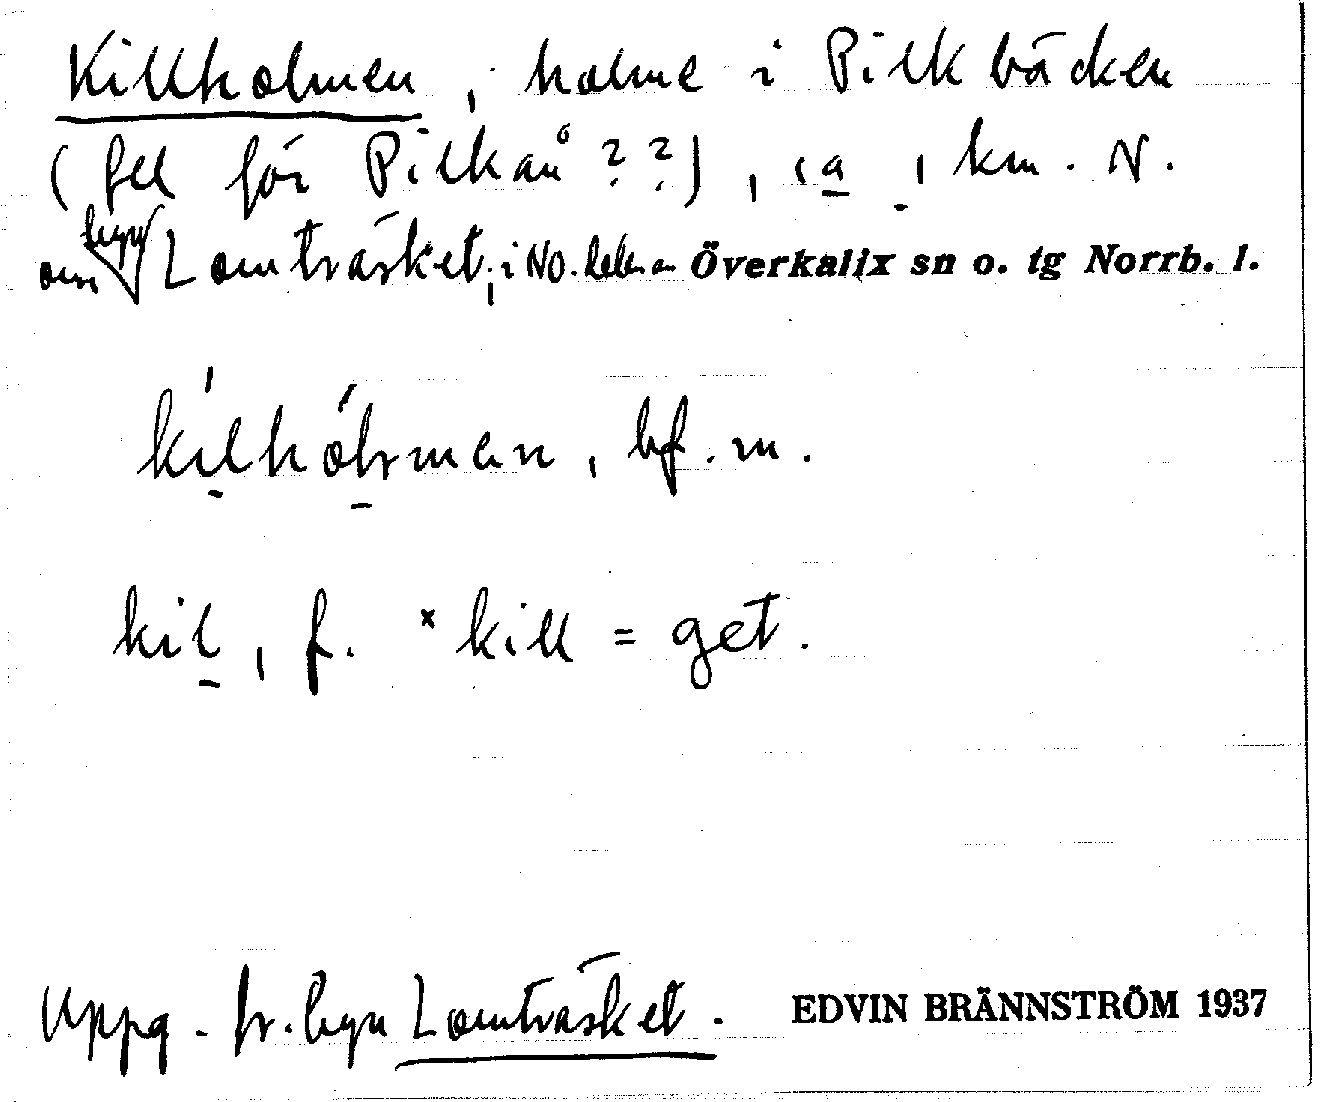 Killholmen, holme i Pilkbäcken
(fel för Pilkån??), ca 1 km. N.
om byn Lomträsket, i NO. delen av Överkalix sn o. tg Norrb. l.
kilhólmen, bf. m.
kil, f. *kill = get.
Uppg. fr. byn Lomträsket. EDVIN BRÄNNSTRÖM 1937